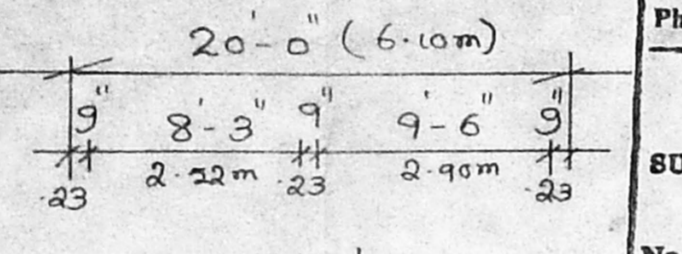 20'-0" (6.10m)
Ph
9" 8'-3" 9" 9'-6" 9"
.23 2.52m .23 2.90m .23
SU
No